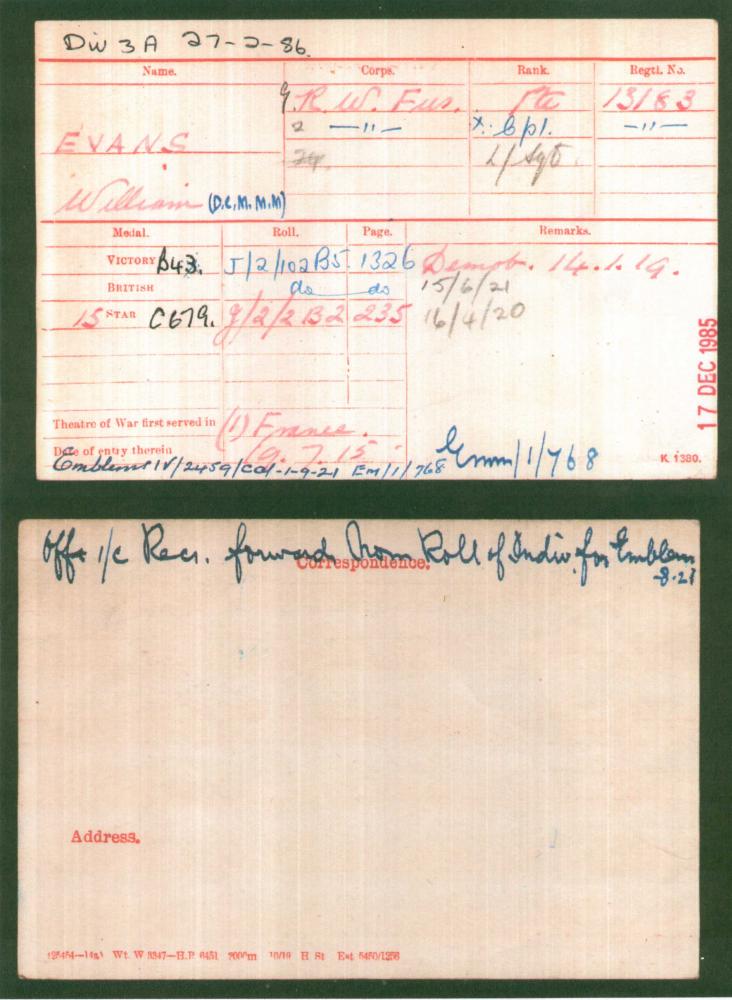 Div 3A 27-2-86.
Name. Corps. Rank. Regtl. No.
R. W. Fus. Pte 13183
2 —"— x. Cpl. —"—
EVANS
L/Sgt.
William (D.C.M. M.M)
Medal. Roll. Page. Remarks.
VICTORY B43. J/2/102 B5. 1326 Demob. 14.1.19.
BRITISH do do 15/6/21
15 STAR C679. g/2/2 B2 235 16/4/20
17 DEC 1985
Theatre of War first served in (1) France.
Date of entry therein 19.7.15
Emblems IV/2459/ 1-9-21 EM/1/768 Emm/1/768 K. 1380.
Offr i/c Recs. forwards Nom Roll of Indiv. for Emblem
Correspondence.
-8-21
Address.
Wt. W 3347—H.P. 6451 10/19 H St